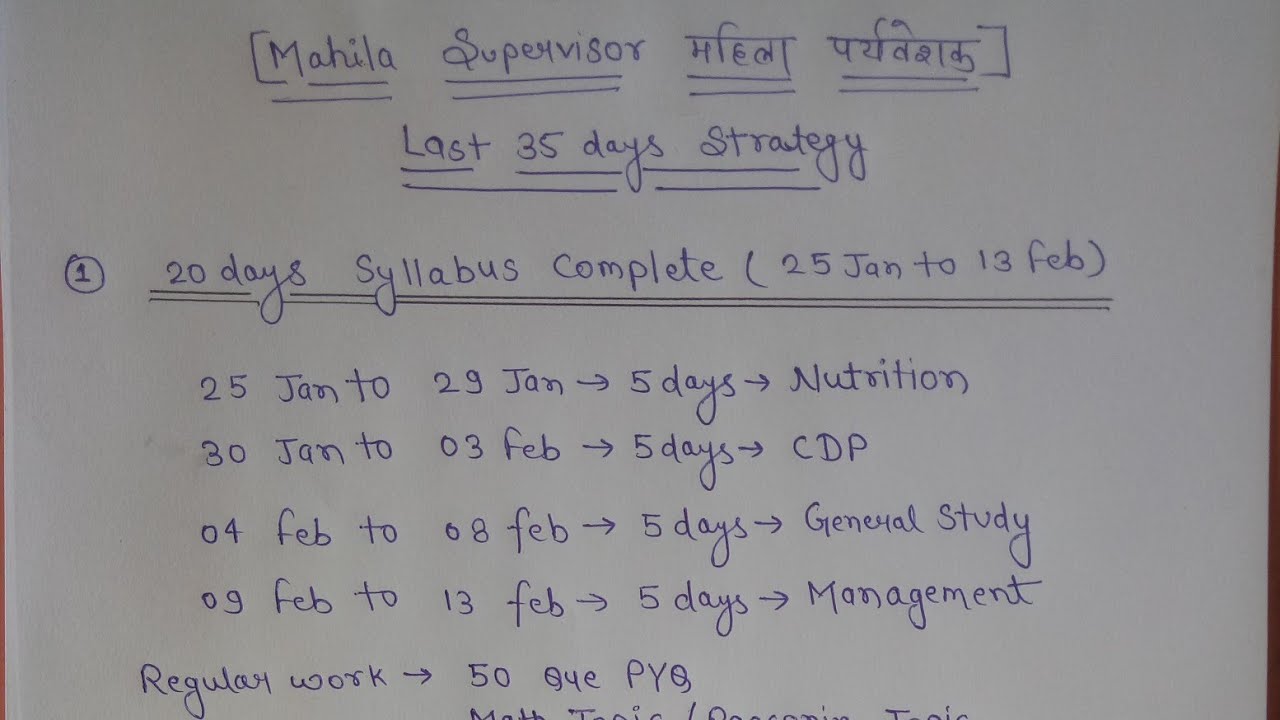 [Mahila Supervisor महिला पर्यवेशक]
Last 35 days Strategy
① 20 days Syllabus Complete (25 Jan to 13 feb)
25 Jan to 29 Jan → 5 days → Nutrition
30 Jan to 03 feb → 5 days → CDP
04 feb to 08 feb → 5 days → General Study
09 feb to 13 feb → 5 days → Management
Regular work → 50 Que PYQ
Math Topic / Reasoning Topic